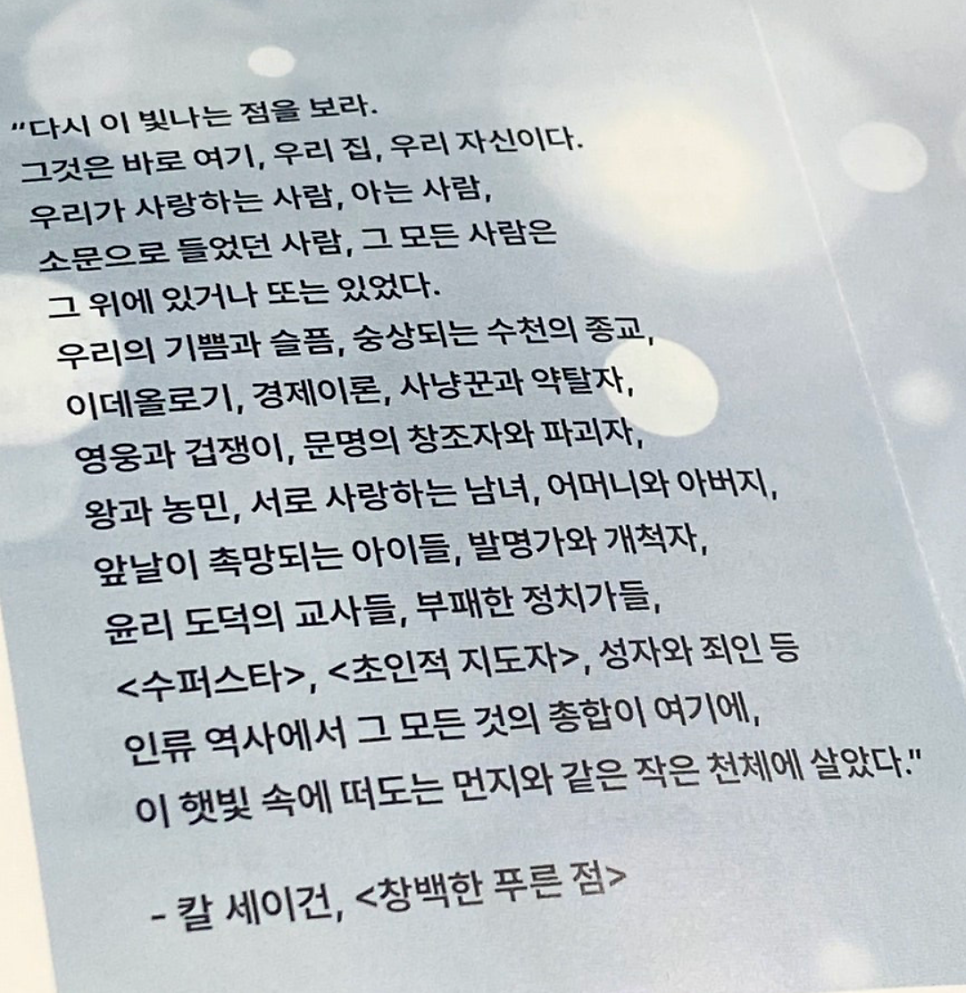 “다시 이 빛나는 점을 보라.
그것은 바로 여기, 우리 집, 우리 자신이다.
우리가 사랑하는 사람, 아는 사람,
소문으로 들었던 사람, 그 모든 사람은
그 위에 있거나 또는 있었다.
우리의 기쁨과 슬픔, 숭상되는 수천의 종교,
이데올로기, 경제이론, 사냥꾼과 약탈자,
영웅과 겁쟁이, 문명의 창조자와 파괴자,
왕과 농민, 서로 사랑하는 남녀, 어머니와 아버지,
앞날이 촉망되는 아이들, 발명가와 개척자,
윤리 도덕의 교사들, 부패한 정치가들,
<수퍼스타>, <초인적 지도자>, 성자와 죄인 등
인류 역사에서 그 모든 것의 총합이 여기에,
이 햇빛 속에 떠도는 먼지와 같은 작은 천체에 살았다.”
- 칼 세이건, <창백한 푸른 점>